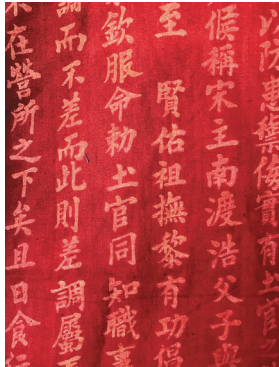 以防患禦侮實有土官之
候稱宋主南渡浩父子與
至 賢佑祖撫黎有功倡
欽服命勅土官同知職事
調而不差而此則差調屬
不在營所之下矣且日食行